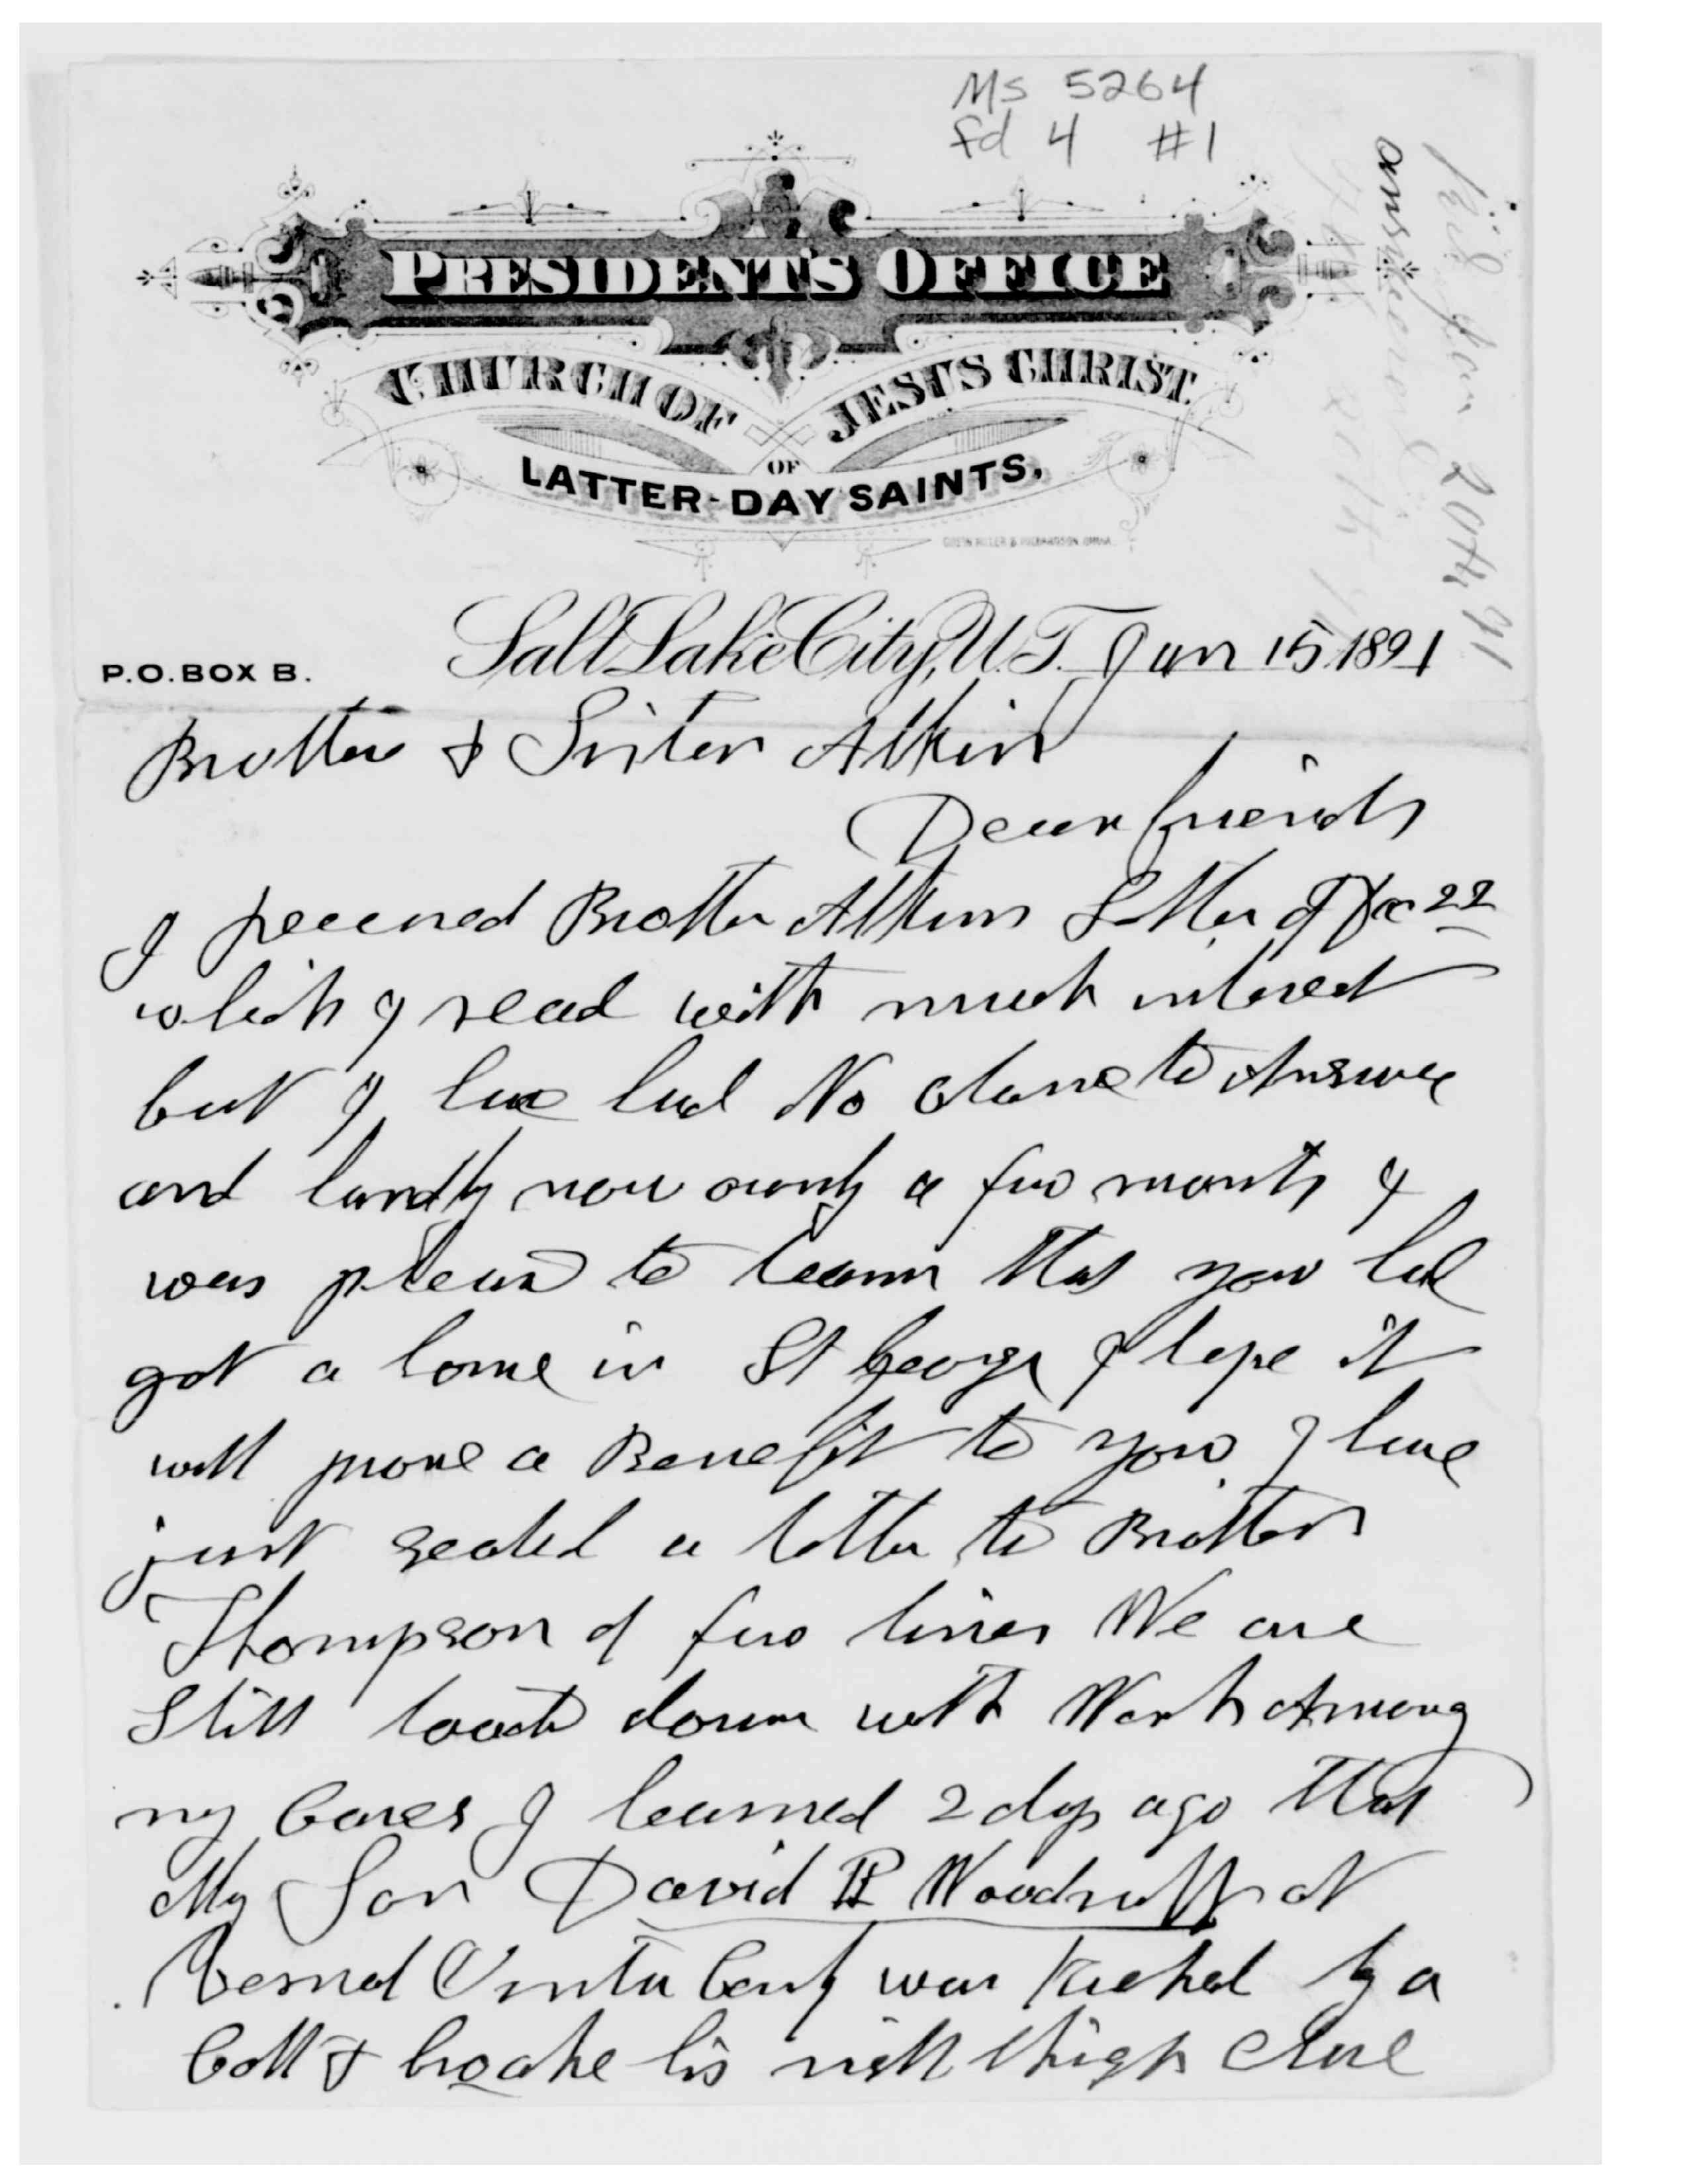 Ms 5264
fd 4 #1
PRESIDENT'S OFFICE
CHURCH OF JESUS CHRIST
OF
LATTER-DAY SAINTS.
Salt Lake City, U.T. Jan 15 1891
P.O. BOX B.
Brother & Sister Atkin
Dear friends
I received Brother Atkins Letter of Dec 22
which I read with much interest
but I have had No chance to Answer
and hardly now ownly a few moments I
was pleased to learn that you had
got a home in St George I hope it
will prove a Benefit to you I have
just sealed a letter to Brother
Thompson of few lines We are
Still loaded down with Work Among
my Cares I learned 2 dys ago that
My Son David P Woodruff at
Vernal Uinta County was kicked by a
Colt & broake his right thigh close
answered
Jan 20th 91